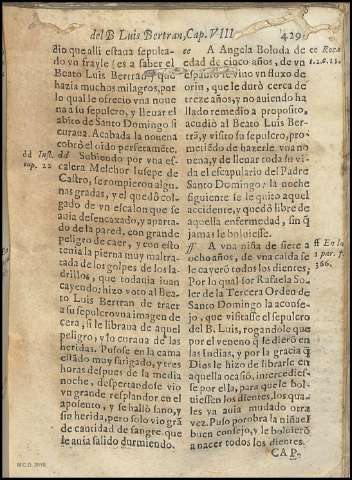 del B Luis Bertran, Cap. VIII
429
dio que alli estaua sepulta-
do vn frayle (es a saber el
Beato Luis Bertran) que
hazia muchos milagros, por
lo qual le ofrecio vna noue
na à su sepulcro, y lleuar el
abito de Santo Domingo si
curaua. Acabada la nouena
cobró el oido perfectamēte.
dd Subiendo por vna es-
calera Melchor Iusepe de
Castro, se rompieron algu-
nas gradas, y el quedó col-
gado de vn escalon que se
auia desencaxado, y aparta-
do de la pared, con grande
peligro de caer, y con esto
tenia la pierna muy maltra-
tada de los golpes de los la-
drillos, que todauia iuan
cayendo: hizo voto al Bea-
to Luis Bertran de traer
a su sepulcro vna imagen de
cera, si le libraua de aquel
peligro, y lo curaua de las
heridas. Pusose en la cama
estādo muy fatigado, y tres
horas despues de la media
noche, despertandose vio
vn grande resplandor en el
aposento, y se halló sano, y
sin herida, pero solo vio grā
de cantidad de sangre que
le auia salido durmiendo.
dd Iust.
cap. 22
ee A Angela Boluda de
edad de cinco años, de vn
espauto se vino vn fluxo de
orin, que le duró cerca de
treze años, y no auiendo ha
llado remedio a proposito,
acudió al Beato Luis Ber-
trā, y visitó su sepulcro, pro-
metiēdo de hazerle vna no
uena, y de lleuar toda su vi-
da el escapulario del Padre
Santo Domingo: la noche
siguiente se le quitó aquel
accidente, y quedó libre de
aquella enfermedad, sin q̄
jamas le boluiesse.
ff A vna niña de siete a
ocho años, de vna caida se
le cayeró todos los dientes;
Por lo qual sor Rafaela So-
ler de la Tercera Orden de
Santo Domingo la aconse-
jo, que visitasse el sepulcro
del B. Luis, rogandole que
por el veneno q̄ le dieró en
las Indias, y por la gracia q̄
Dios le hizo de librarle en
aquella ocasió, intercedies-
se por ella, para que le bol-
uiessen los dientes, los qua-
les ya auia mudado otra
vez. Puso por obra la niña el
buen consejo, y le boluieró
a nacer todos los dientes.
ee Roca
l.2.c.13.
ff En la
1 par. f.
366.
CAP-